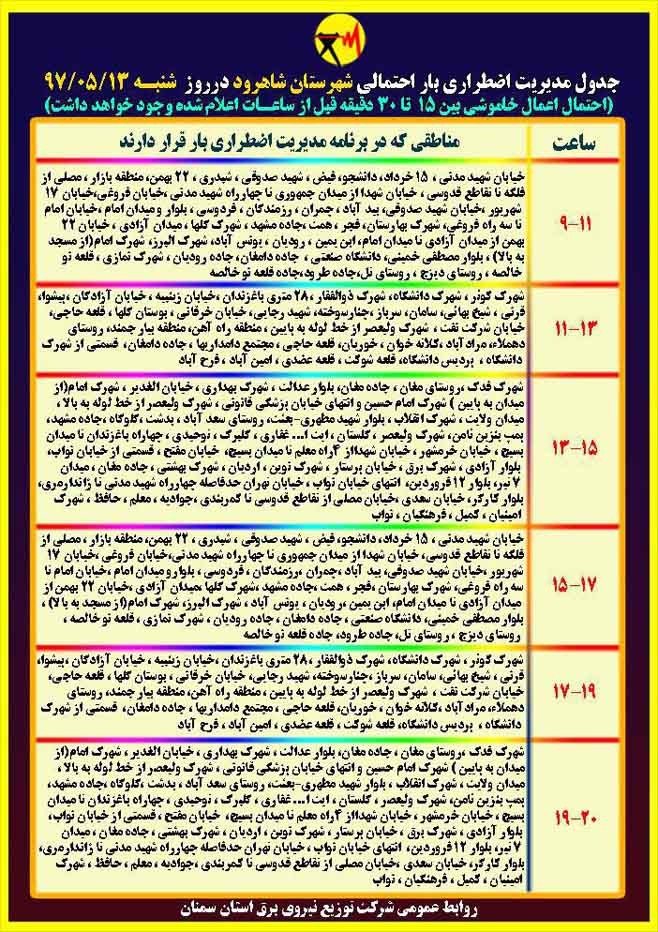 جدول مدیریت اضطراری بار احتمالی شهرستان شاهرود درروز شنبـه ۹۷/۰۵/۱۳
(احتمال اعمال خاموشی بین ۱۵ تا ۳۰ دقیقه قبل از ساعـات اعلام شده وجود خواهد داشت)
ساعت
مناطقی که در برنامه مدیریت اضطراری بار قرار دارند
۹-۱۱
خیابان شهید مدنی ، ۱۵ خرداد، دانشجو، فیض ، شهید صدوقی ، شیدری ، ۲۲ بهمن، منطقه بازار ، مصلی از
فلکه تا تقاطع قدوسی ، خیابان شهدا از میدان جمهوری تا چهارراه شهید مدنی ،خیابان فروغی،خیابان ۱۷
شهریور ،خیابان شهید صدوقی، بید آباد ، چمران ، رزمندگان ، فردوسی ، بلوار و میدان امام ،خیابان امام
تا سه راه فروغی، شهرک بهارستان، فجر ، همت ،جاده مشهد ، شهرک گلها ، میدان آزادی ، خیابان ۲۲
بهمن از میدان آزادی تا میدان امام، ابن یمین ، رودیان ، یونس آباد، شهرک البرز، شهرک امام(از مسجد
به بالا) ، بلوار مصطفی خمینی، دانشگاه صنعتی ، جاده دامغان، جاده رودیان ، شهرک نمازی ، قلعه نو
خالصه ، روستای دیزج ، روستای تل، جاده طرود،جاده قلعه نو خالصه
۱۱-۱۳
شهرک کوثر ، شهرک دانشگاه، شهرک ذوالفقار ، ۲۸ متری باغزندان ،خیابان زینبیه ، خیابان آزادگان ،پیشوا،
قرنی ، شیخ بهائی، سامان، سرباز ،چنارسوخته، شهید رجایی، خیابان خرقانی ، بوستان گلها ، قلعه حاجی،
خیابان شرکت نفت ، شهرک ولیعصر از خط لوله به پایین ، منطقه راه آهن، منطقه بیار جمند، روستای
دهملا، مراد آباد، کلاته خوان ، خوریان، قلعه حاجی ، مجتمع دامداریها ، جاده دامغان، قسمتی از شهرک
دانشگاه ، پردیس دانشگاه، قلعه شوکت ، قلعه عضدی ، امین آباد ، فرح آباد
۱۳-۱۵
شهرک فدک ،روستای مغان ، جاده مغان، بلوار عدالت ، شهرک بهداری ، خیابان الغدیر ، شهرک امام(از
میدان به پایین ) شهرک امام حسین و انتهای خیابان پزشکی قانونی ، شهرک ولیعصر از خط لوله به بالا ،
میدان ولایت ، شهرک انقلاب ، بلوار شهید مطهری-بعثت، روستای سعد آباد ، بدشت ،گلوگاه ،جاده مشهد،
پمپ بنزین ثامن، شهرک ولیعصر ، گلستان ، آیت ا... غفاری ، گلبرگ ، توحیدی ، چهارراه باغزندان تا میدان
بسیج ، خیابان خرمشهر ، خیابان شهدااز ۴راه معلم تا میدان بسیج، خیابان مفتح ، قسمتی از خیابان نواب،
بلوار آزادی ، شهرک برق ، خیابان پرستار ، شهرک نوین ، اردیان ، شهرک بهشتی ، جاده مغان ، میدان
۷ تیر، بلوار ۱۲ فروردین، انتهای خیابان نواب ، خیابان تهران حدفاصله چهارراه شهید مدنی تا ژاندارمری،
بلوار کارگر، خیابان سعدی ،خیابان مصلی از تقاطع قدوسی تا کمربندی، جوادیه ، معلم ، حافظ ، شهرک
امینیان ، کمیل ، فرهنگیان ، نواب
۱۵-۱۷
خیابان شهید مدنی ، ۱۵ خرداد، دانشجو، فیض ، شهید صدوقی ، شیدری ، ۲۲ بهمن، منطقه بازار ، مصلی از
فلکه تا تقاطع قدوسی ، خیابان شهدا از میدان جمهوری تا چهارراه شهید مدنی ، خیابان فروغی، خیابان ۱۷
شهریور ،خیابان شهید صدوقی، بید آباد ،چمران ،رزمندگان ، فردوسی ، بلوار و میدان امام، خیابان امام تا
سه راه فروغی، شهرک بهارستان ،فجر ، همت ،جاده مشهد، شهرک گلها ،میدان آزادی ،خیابان ۲۲ بهمن از
میدان آزادی تا میدان امام، ابن یمین ،رودیان ، یونس آباد ، شهرک البرز، شهرک امام(از مسجد به بالا) ،
بلوار مصطفی خمینی، دانشگاه صنعتی ، جاده دامغان ، جاده رودیان ، شهرک نمازی ، قلعه نو خالصه ،
روستای دیزج ، روستای تل، جاده طرود، جاده قلعه نو خالصه
۱۷-۱۹
شهرک کوثر ، شهرک دانشگاه، شهرک ذوالفقار ، ۲۸ متری باغزندان ،خیابان زینبیه ، خیابان آزادگان ،پیشوا،
قرنی ، شیخ بهائی، سامان، سرباز ،چنارسوخته، شهید رجایی، خیابان خرقانی ، بوستان گلها ، قلعه حاجی،
خیابان شرکت نفت ، شهرک ولیعصر از خط لوله به پایین ، منطقه راه آهن، منطقه بیار جمند، روستای
دهملا، مراد آباد، کلاته خوان ، خوریان، قلعه حاجی ، مجتمع دامداریها ، جاده دامغان، قسمتی از شهرک
دانشگاه ، پردیس دانشگاه، قلعه شوکت ، قلعه عضدی ، امین آباد ، فرح آباد
۱۹-۲۰
شهرک فدک ،روستای مغان ، جاده مغان، بلوار عدالت ، شهرک بهداری ، خیابان الغدیر ، شهرک امام(از
میدان به پایین ) شهرک امام حسین و انتهای خیابان پزشکی قانونی ، شهرک ولیعصر از خط لوله به بالا ،
میدان ولایت ، شهرک انقلاب ، بلوار شهید مطهری-بعثت، روستای سعد آباد ، بدشت ،گلوگاه ،جاده مشهد،
پمپ بنزین ثامن، شهرک ولیعصر ، گلستان ، آیت ا... غفاری ، گلبرگ ، توحیدی ، چهارراه باغزندان تا میدان
بسیج ، خیابان خرمشهر ، خیابان شهدااز ۴راه معلم تا میدان بسیج، خیابان مفتح ، قسمتی از خیابان نواب،
بلوار آزادی ، شهرک برق ، خیابان پرستار ، شهرک نوین ، اردیان ، شهرک بهشتی ، جاده مغان ، میدان
۷ تیر، بلوار ۱۲ فروردین، انتهای خیابان نواب ، خیابان تهران حدفاصله چهارراه شهید مدنی تا ژاندارمری،
بلوار کارگر، خیابان سعدی ،خیابان مصلی از تقاطع قدوسی تا کمربندی، جوادیه ، معلم ، حافظ ، شهرک
امینیان ، کمیل ، فرهنگیان ، نواب
روابط عمومی شرکت توزیع نیروی برق استان سمنان